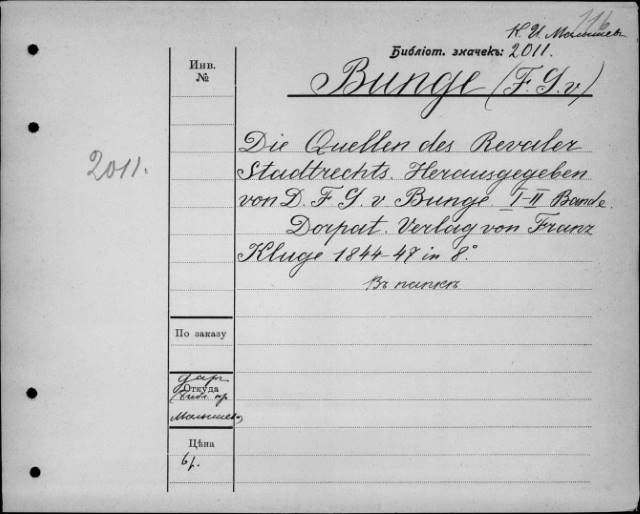 116
К. И. Малышев
Библіот. значекъ: 2011.
Инв.
№
Bunge (F. G. v)
2011.
Die Quellen des Revaler
Stadtrechts. Herausgegeben
von D. F. G. v Bunge. I-II Bande.
Dorpat. Verlag von Franz
Kluge 1844-47 in 8°
Въ папкѣ
По заказу
Откуда
даръ
Библ. пр.
Малышева
Цѣна
6р.